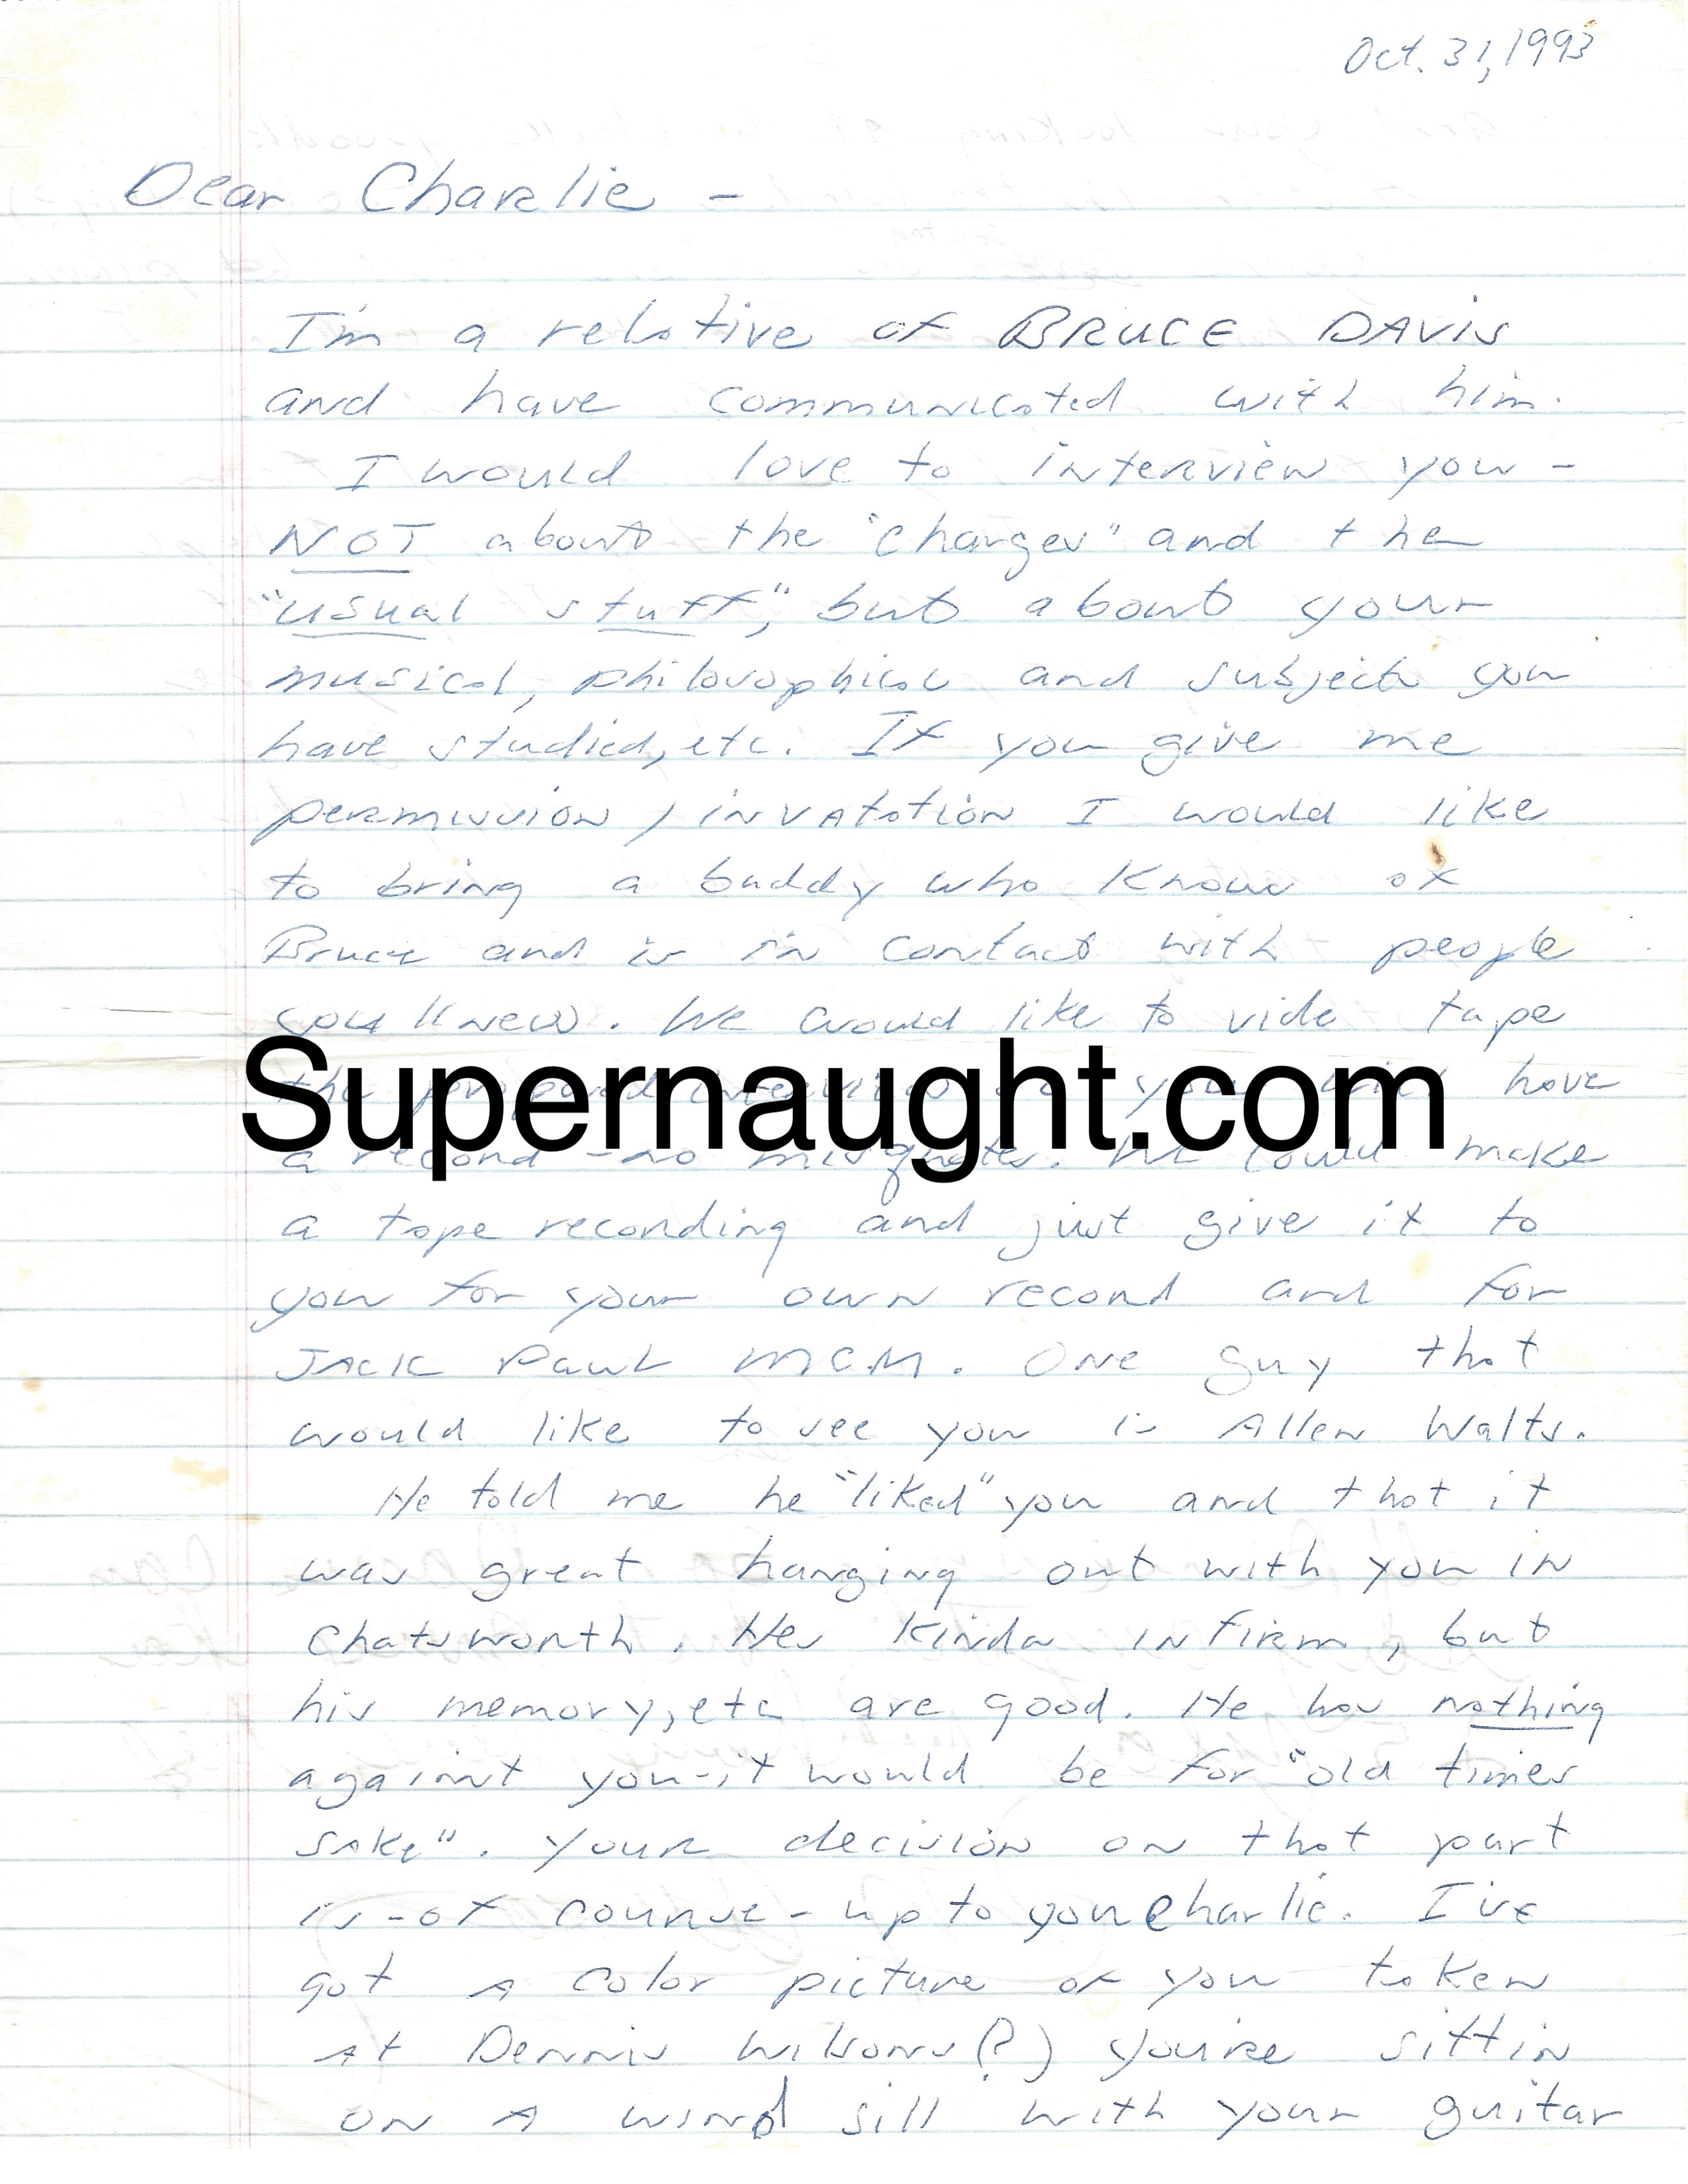 Oct. 31, 1993
Dear Charlie -
I'm a relative of BRUCE DAVIS
and have communicated with him.
I would love to interview you -
NOT about the "charges" and the
"usual stuff," but about your
musical, philosophical and subjects you
have studied, etc. If you give me
permission / invatation I would like
to bring a buddy who knows of
Bruce and is in contact with people
you knew. We would like to vide tape
the proposed interview so you will have
a record - no misquotes. We could make
a tape recording and just give it to
you for your own record and for
JACK PAUL MCM. One guy that
would like to see you is Allen Walts.
He told me he "liked" you and that it
was great hanging out with you in
Chatsworth. Hes kinda infirm, but
his memory, etc are good. He has nothing
against you - it would be for "old times
sake". Your decision on that part
is - of course - up to you Charlie. I've
got a color picture of you taken
at Dennis Wilsons (?) You're sittin
on a wind sill with your guitar
Supernaught.com